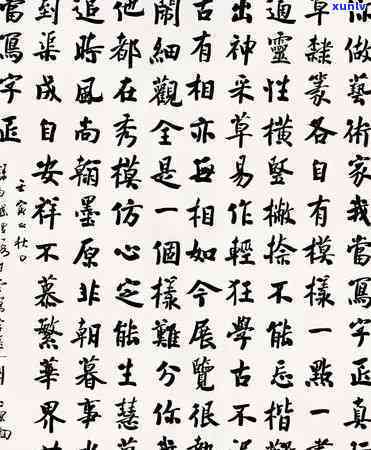 你做藝術家我當寫字匠真行
草隸篆各自有模樣一點一
通靈性橫豎撇捺不能忘楷
出神采草易作輕狂學古不
古有相亦無相如今展覽很
鬧細觀全是一個樣難分你
他都在秀模仿心定能生慧
追時風尚翰墨原非朝暮事
到渠成自安祥不慕繁華界
當寫字匠